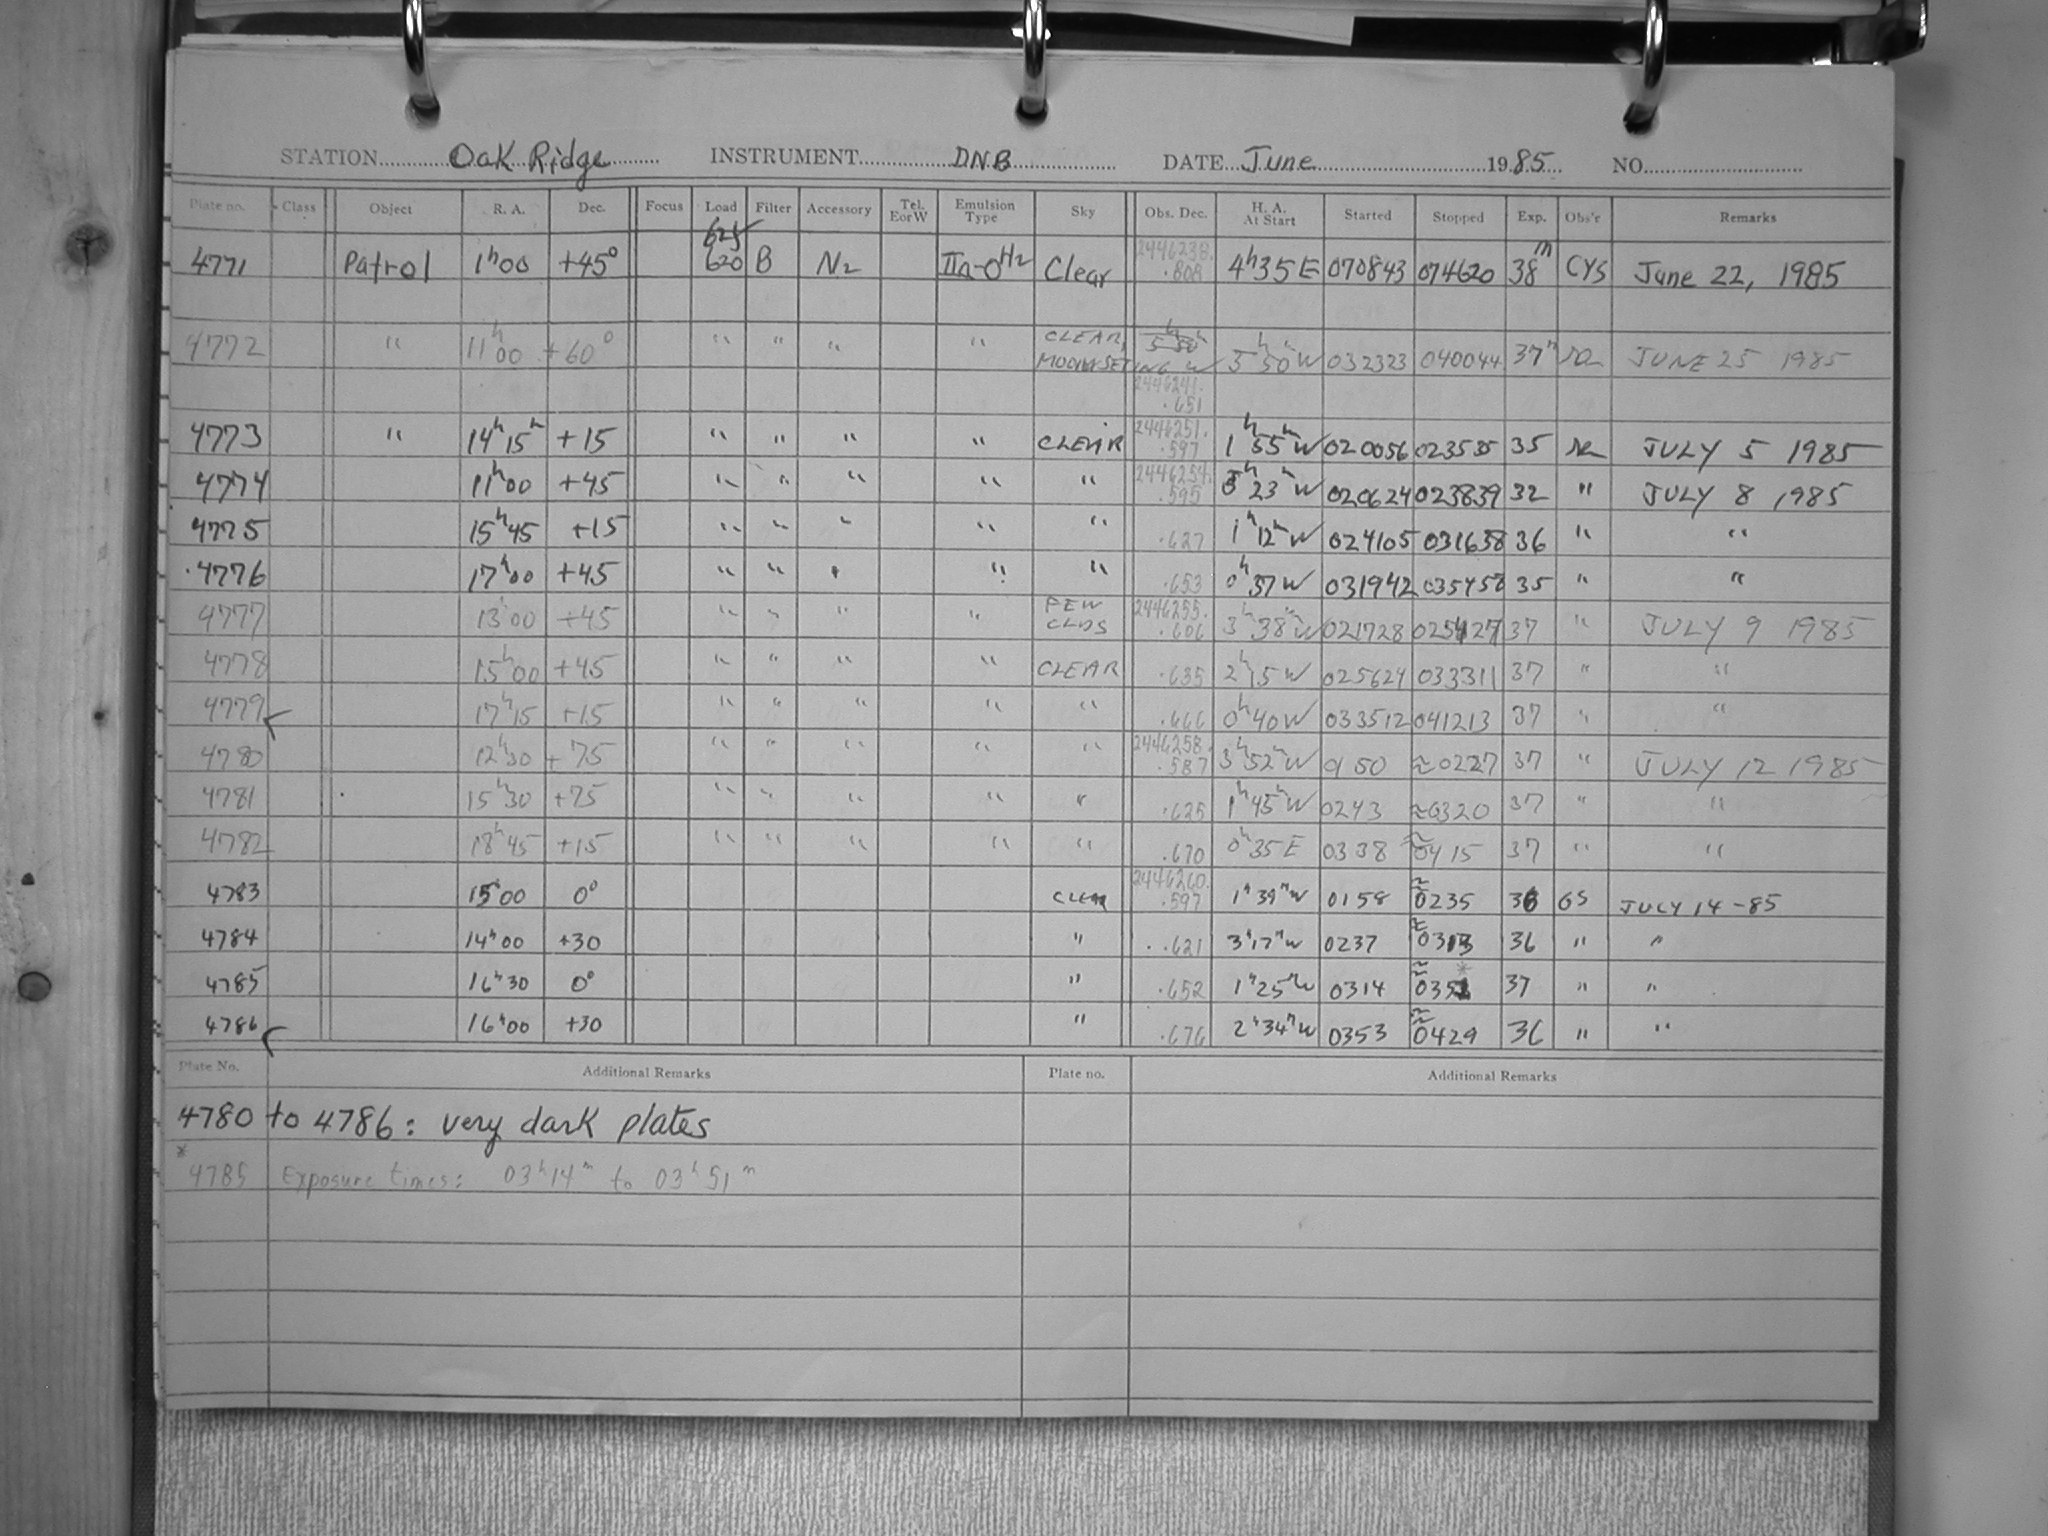 STATION Oak Ridge INSTRUMENT DNB DATE June 1985 NO.
Plate no. Class Object R. A. Dec. Focus Load Filter Accessory Tel. E or W Emulsion Type Sky Obs. Dec. H. A. At Start Started Stopped Exp. Obs'r Remarks
4771 Patrol 1h00 +45° 625 620 B N2 IIa-OH2 Clear 2446238.808 4h35 E 070843 074620 38m CYS June 22, 1985
4772 " 11h00 +60° " " " " CLEAR, MOON SETTING W 5h50m W 032323 040044 37m JUNE 25 1985
2446241.651
4773 " 14h15m +15 " " " " CLEAR 2446251.597 1h55m W 020056 023535 35 JULY 5 1985
4774 11h00 +45 " " " " " 2446254.595 5h23m W 020624 023839 32 " JULY 8 1985
4775 15h45 +15 " " " " " .627 1h12m W 024105 031638 36 " "
4776 17h00 +45 " " " " " .653 0h37 W 031942 035458 35 " "
4777 13h00 +45 " " " " FEW CLDS 2446255.606 3h38m W 021728 025427 37 " JULY 9 1985
4778 15h00 +45 " " " " CLEAR .635 2h15 W 025624 033311 37 " "
4779 17h15 +15 " " " " " .666 0h40 W 033512 041213 37 " "
4780 12h30 +75 " " " " " 2446258.587 3h52m W 0150 ≈0227 37 " JULY 12 1985
4781 15h30 +75 " " " " " .625 1h45m W 0243 ≈0320 37 " "
4782 18h45 +15 " " " " " .670 0h35 E 0338 ≈0415 37 " "
4783 15h00 0° CLEAR 2446260.597 1h39m W 0158 ≈0235 36 GS JULY 14-85
4784 14h00 +30 " .621 3h17m W 0237 ≈0313 36 " "
4785 16h30 0° " .652 1h25m W 0314 ≈0351* 37 " "
4786 16h00 +30 " .676 2h34m W 0353 ≈0429 36 " "
Plate No. Additional Remarks Plate no. Additional Remarks
4780 to 4786: very dark plates
*4785 Exposure times: 03h14m to 03h51m